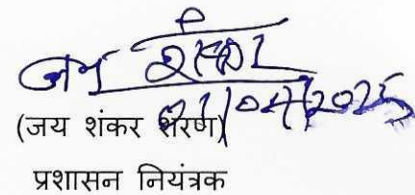 जय शंकर
21/04/2025
(जय शंकर शरण)
प्रशासन नियंत्रक